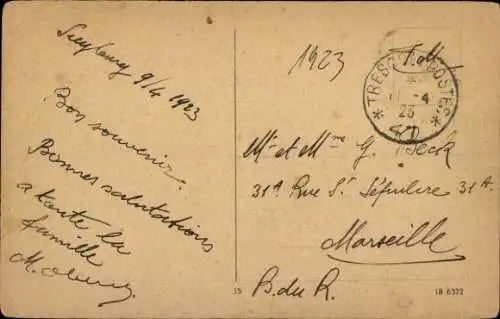 Siegburg 9/4 1923
Bon souvenir.
Bonnes salutations
a toute la
famille
M.
1923
F. M.
* TRESOR ET POSTES *
-4
23
Mr et Mme G. Beck
31A Rue St Sépulcre 31A.
Marseille
B. du R.
15
18 6372